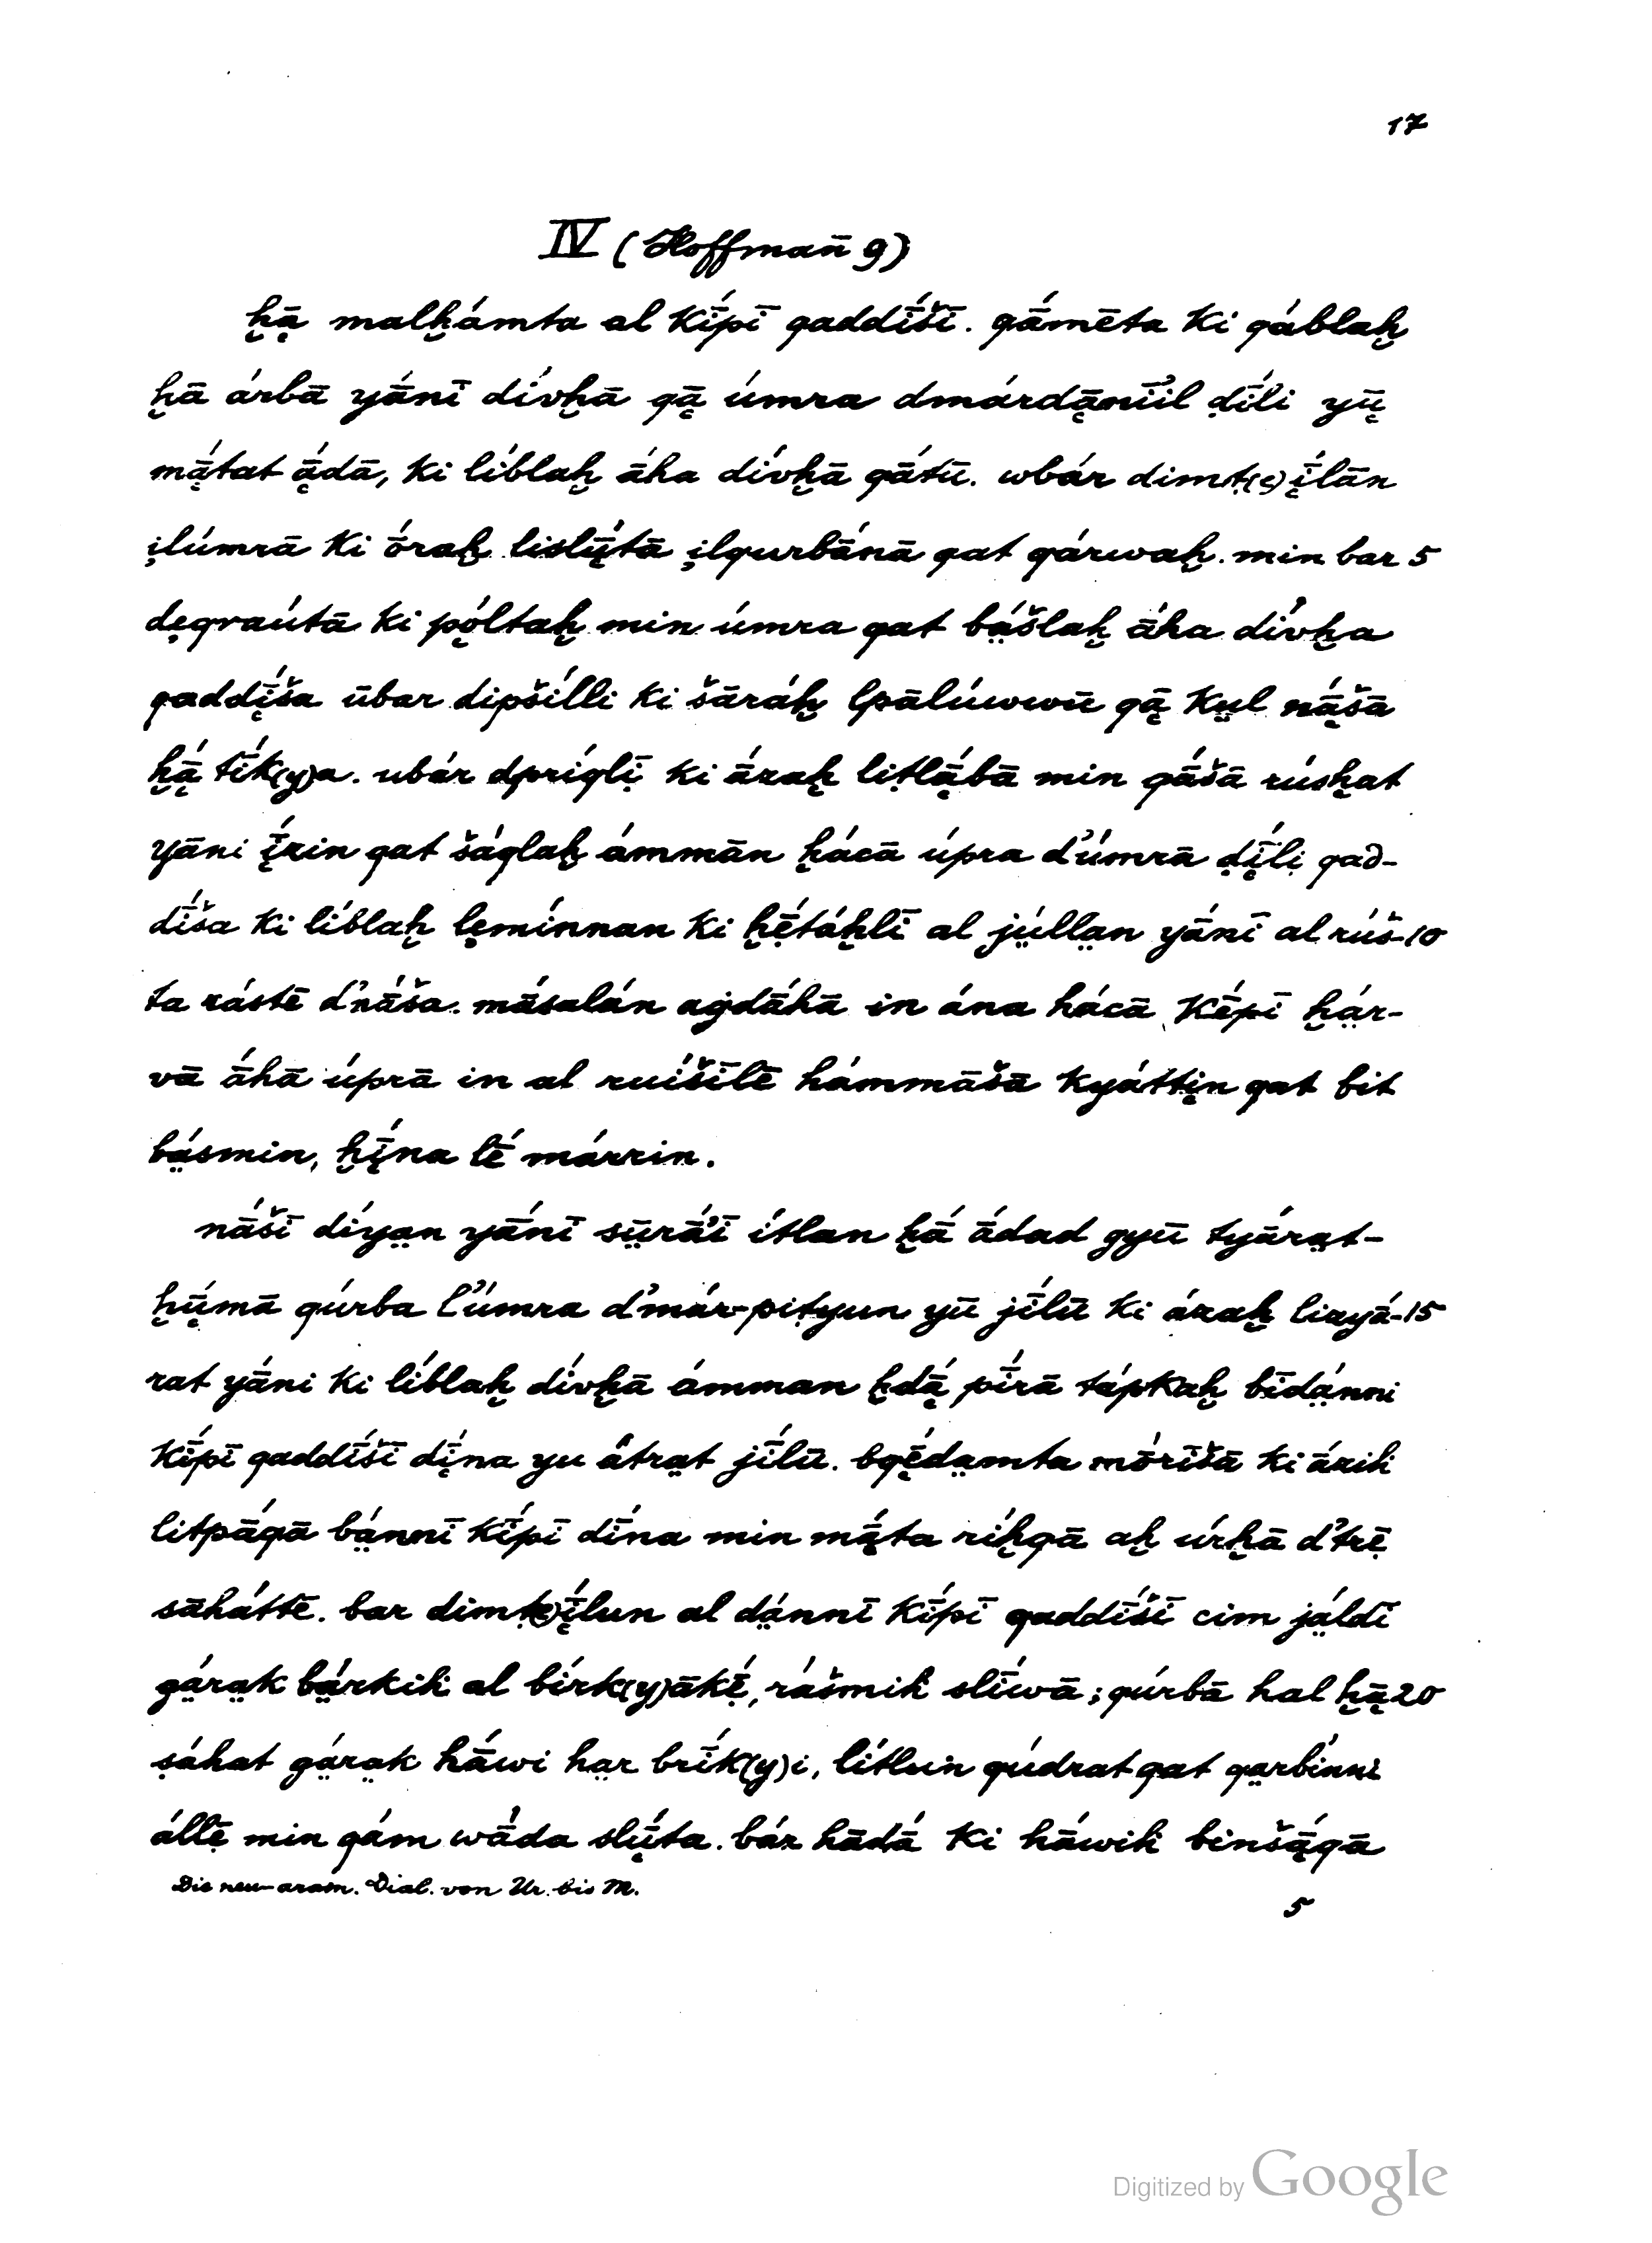 17
IV (Hoffmañ 9)
ḫą̄ malḫámta al kī́pī qaddī́šī. qāmēta ki qáblaḫ
ḫā árbā yā́nī dívḫā qą̄ úmra dmárdą̄nīīl ḍī́li yų̄
mą̄́tat ą̄́dā, ki líblaḫ āha dívḫā qā́tū. wbár dimṭ(ę)į̄́lān
įlúmrā ki ṓraḫ lislų̄́tā įlqurbā́nā qat qárwaḫ. min bar 5
dęqraútā ki pǫ́ltaḫ min úmra qat bä́šlaḫ ā́ha dívḫa
qaddį̄́ša ūbar dipšílli ki šāráḫ lpālúwwū qą̄ kṳl ną̄́šā
ḫą̄́ tī́k(y)a. ubár dpríqlị̄ ki ā́zaḫ liṭlą̄́bā min qā́šā rúsḫat
yāni į̄́zin qat šáqlaḫ ámmān ḫácā úpra d'úmrā ḍį̄́lị qad-
dī́ša ki líblaḫ lęmínnan ki ḫẹ̄́táḫlī al jṳ́lla̤n yā́nī al rúš-10
ta rástē d'nā́ša. māsalán aġdā́hā in ána hácā kḗpī ḫä́r-
vā ā́hā úprā in al ruíšīlē hámmāšā kyáttįn qat bit
bä́smin, ḫį̄́na lḗ márrin.
nā́šī díya̤n yā́nī sṳ̄rā́ī ítlan ḫā́ ā́dad gyū tyā́ra̤t-
ḫų̄́mā qúrba l'úmra d'már-piṭyun yū jī́lū ki ázaḫ lizyā́-15
rat yāni ki líblaḫ dívḫā ámman ḫdą̄́ pī́rā tápkaḫ bīdä́nni
kī́pī qaddī́šī dį̄́na yu ātra̤t jī́lū. bqę̄́da̤mta mṓrīšā ki ā́zih
litpā́qā bä́nnī kī́pī dī́na min mą̄́ta ríḫqā aḫ úrḫā d'trẹ̄
sāháttē. bar dimṭ(ę)į̄́lun al dä́nnī kī́pī qaddī́šī cim jä́ldī
gä́ra̤k bä́rkih al bírk(y)ākḗ, rášmih slī́wā; qúrbā hal ḫą̄20
sáhat gä́ra̤k hā́wi ha̤r brī́k(y)i, lítlun qúdrat qat qa̤rbínni
állẹ̄ min qám wā́da slų̄́ta. bár hādā́ ki hā́wih binšą̄́qā
Die neu-aram. Dial. von Ur. bis M.
5
Digitized by Google